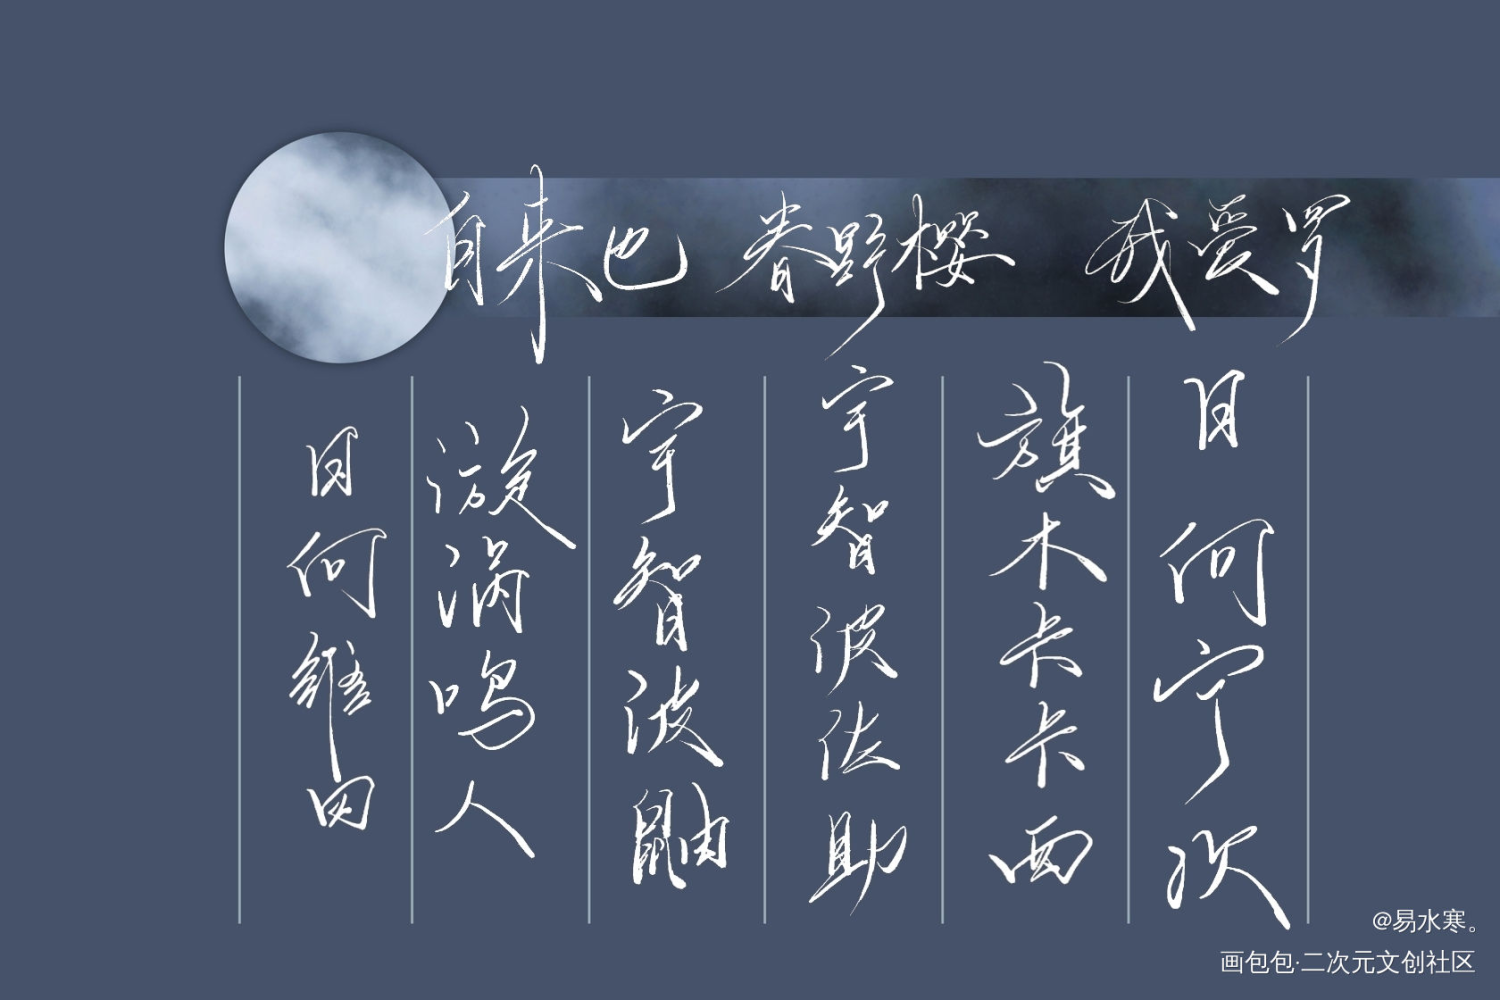 自来也 春野樱 我爱罗
日向宁次
旗木卡卡西
宇智波佐助
宇智波鼬
漩涡鸣人
日向雏田
@易水寒。
画包包·二次元文创社区